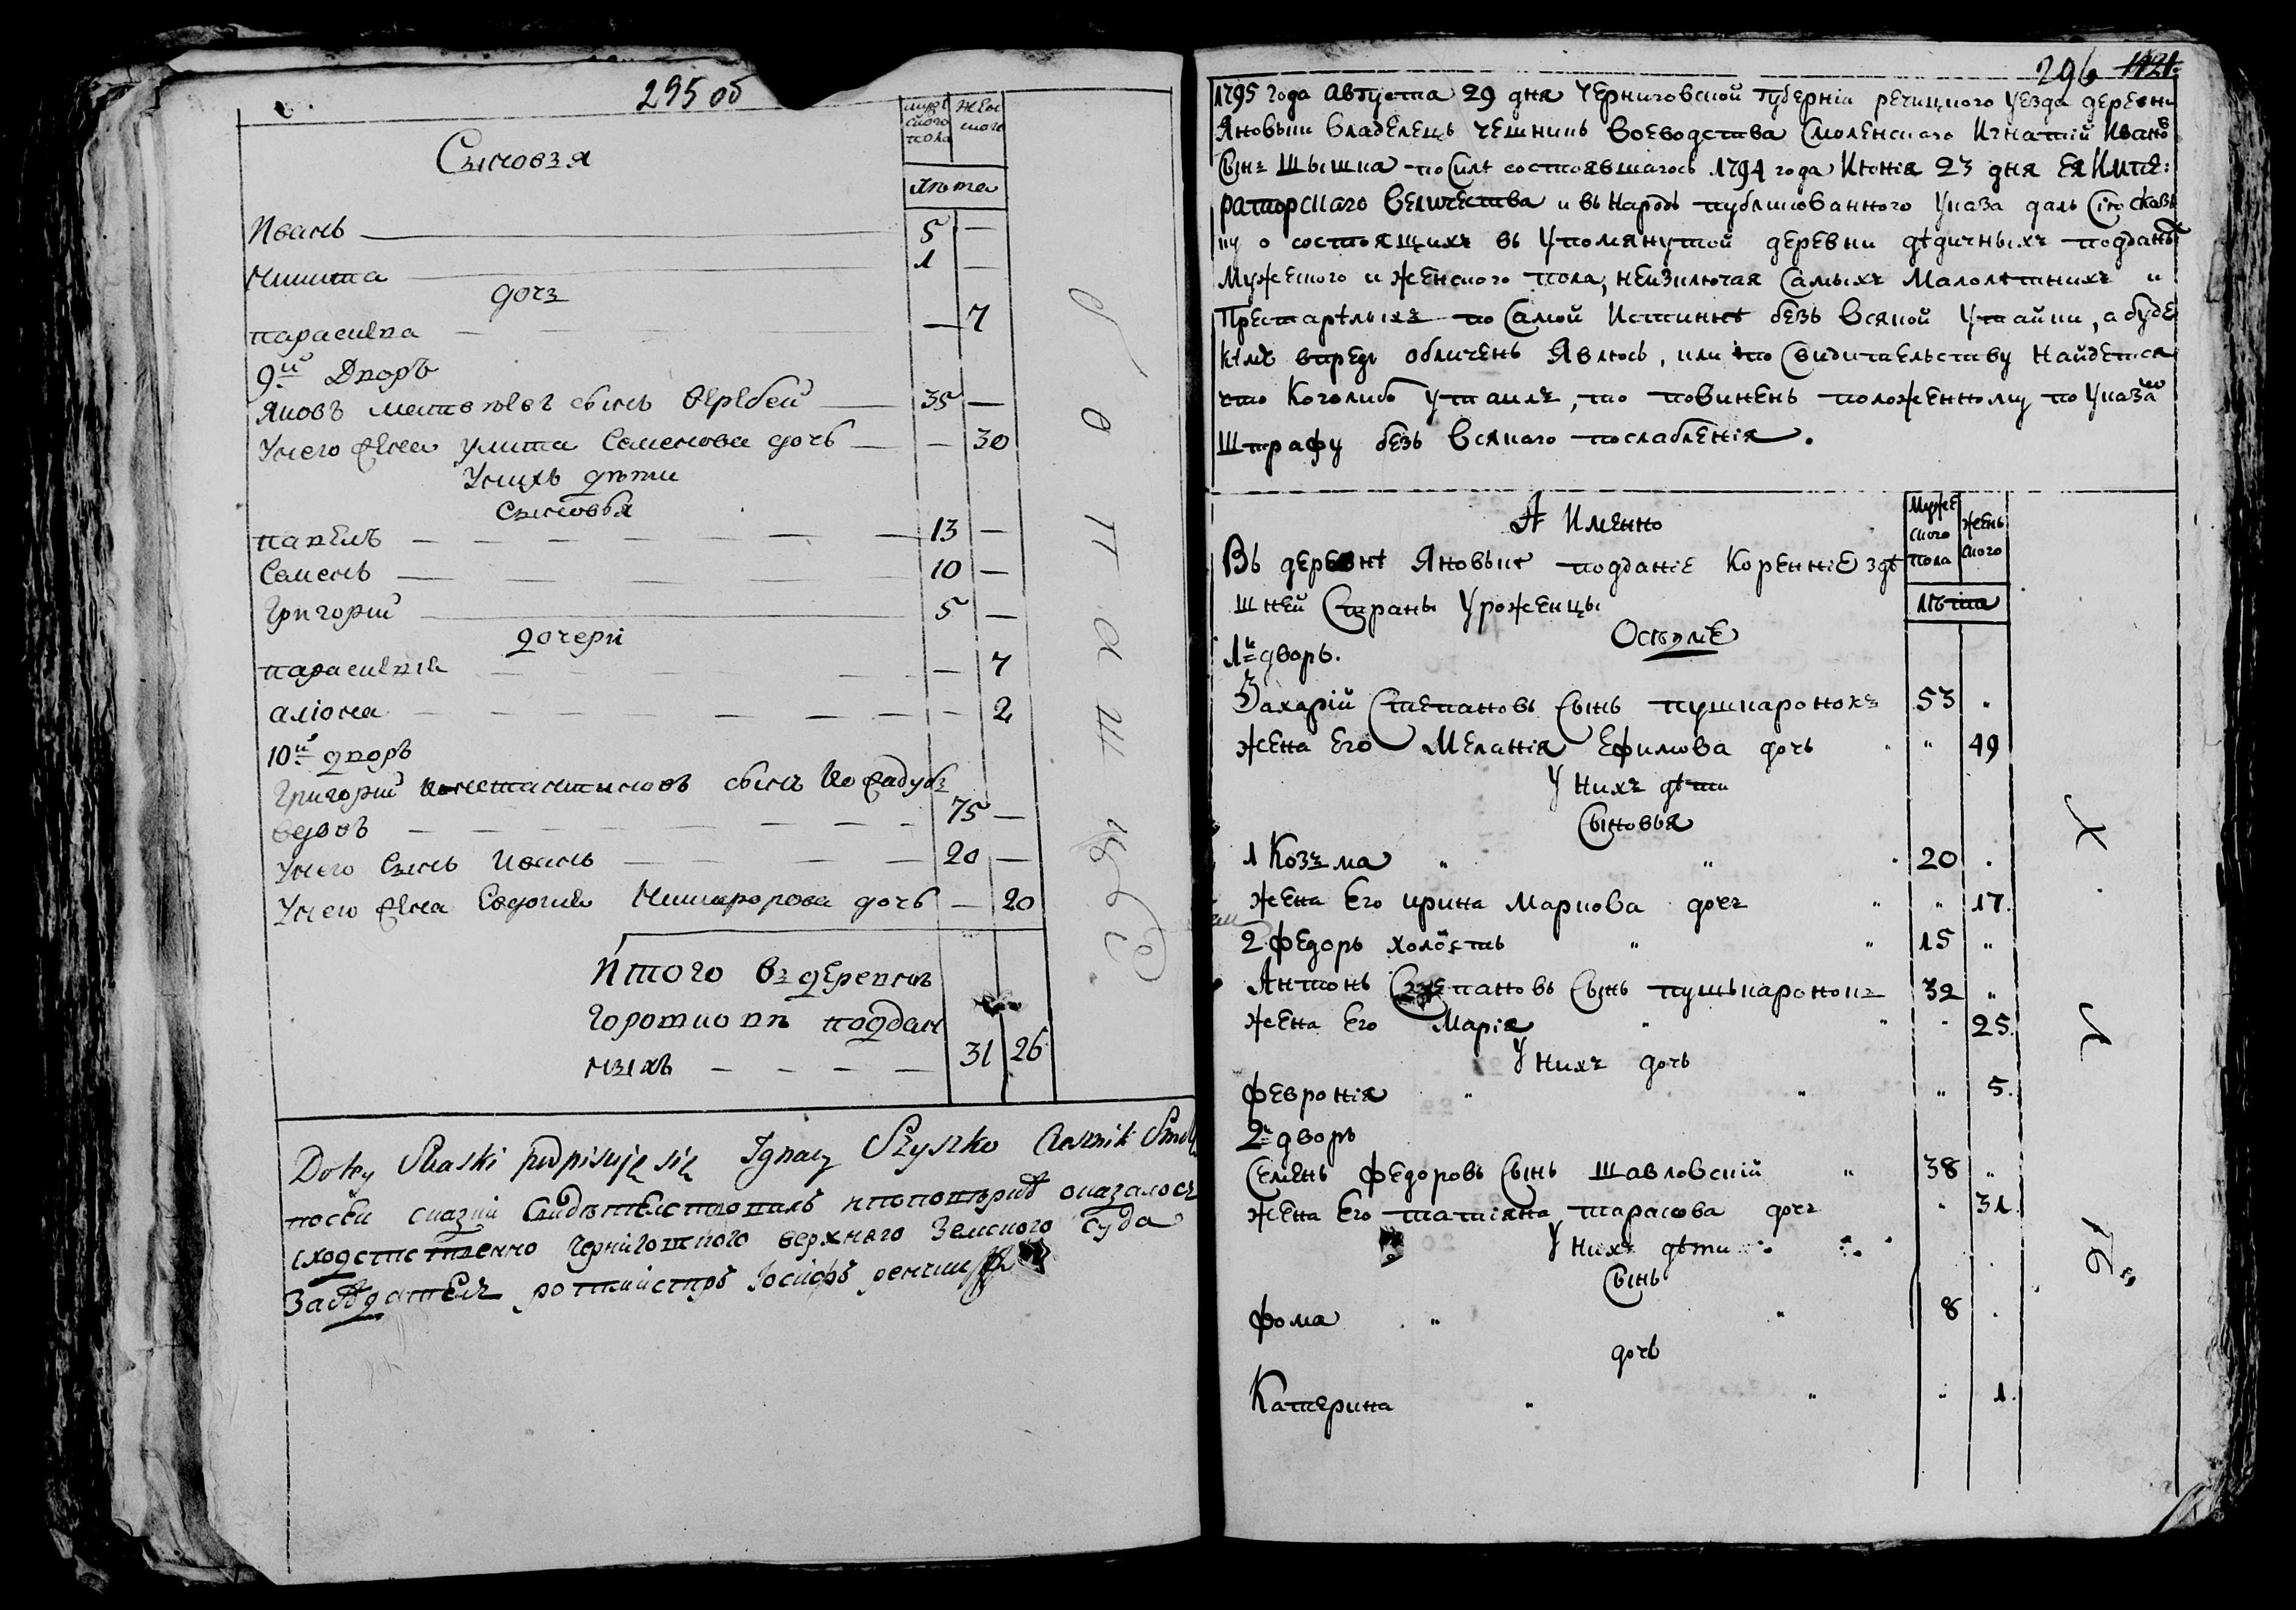 295 об
мужеского пола
женского
Сыновья
лѣта
Иванъ 5 —
Никита 1 —
дочь
параскѣва — 7
9й Дворъ
Яковъ матвѣевъ сынъ Веребей 35 —
Унего Жена улита Семенова дочь — 30
Унихъ дѣти
Сыновья
павелъ 13 —
Семенъ 10 —
Григорий 5 —
дочери
параскѣвия — 7
аліона — 2
10й дворъ
Григорий Константиновъ сынъ
вдовъ 75 —
Унего Сынъ Иванъ 20 —
Унего Жена Евдокия Никифорова дочь — 20
Итого въ деревнѣ
Горошковѣ поддан
ныхъ 31 26
Do tey Skaski podpisuję się Ignacy Szyszko Czesnik Smol
посеи сказки Свидѣтелствовалъ ипоповѣркѣ оказалось
сходственно Черниговского верхнего Земского Суда
Засѣдатель ротмистръ Іосифъ
296 1421.
1795 года Августа 29 дня Черниговской Губерніи речицкого уезда деревни
Яновки Владелецъ чешникъ Воеводства Смоленского Игнатій Иванов
Сынъ Шышка по Силѣ состоявшагося 1794 года Июнія 23 дня Ея Импе:
раторскаго Величества и въ Народъ публикованного Указа далъ Сію сказ
ку о состоящихъ въ Упомянутой деревни дѣдичныхъ подданы
Мужеского и женского пола, неизключая Самыхъ Малолѣтнихъ и
Престарѣлыхъ по Самой Истиннѣ безъ Всякой Утайки, а буде
кѣмъ впредь обличенъ Явлюсь, или по Свидительству Найдется
что Коголибо Утаилъ, то повиненъ положенному по Указамъ
Штрафу безъ Всякаго послабленія.
А Именно
Мужеского пола
женьского
Въ деревнѣ Яновкѣ подданіе Коренніе здѣ
шней Страны Уроженцы
лѣта
1й дворъ.
Захарій Степановъ Сынъ пушкаронокъ 53 "
жена Его Меланія Ефимова дочь " 49
У Нихъ дѣти
Сыновья
1 Козьма 20 .
жена Его ирина Маркова дочь " 17.
2 Федоръ холостъ 15 "
Антонъ Степановъ Сынъ пушькаронокъ 32 "
жена Его Марія " 25.
У Нихъ дочь
Февронія " 5.
2й дворъ
Семенъ Федоровъ Сынъ Шавловскій 38 "
жена Его татіяна тарасова дочь " 31.
У Нихъ дѣти
Сынъ
Фома 8 .
дочь
Катерина " 1.